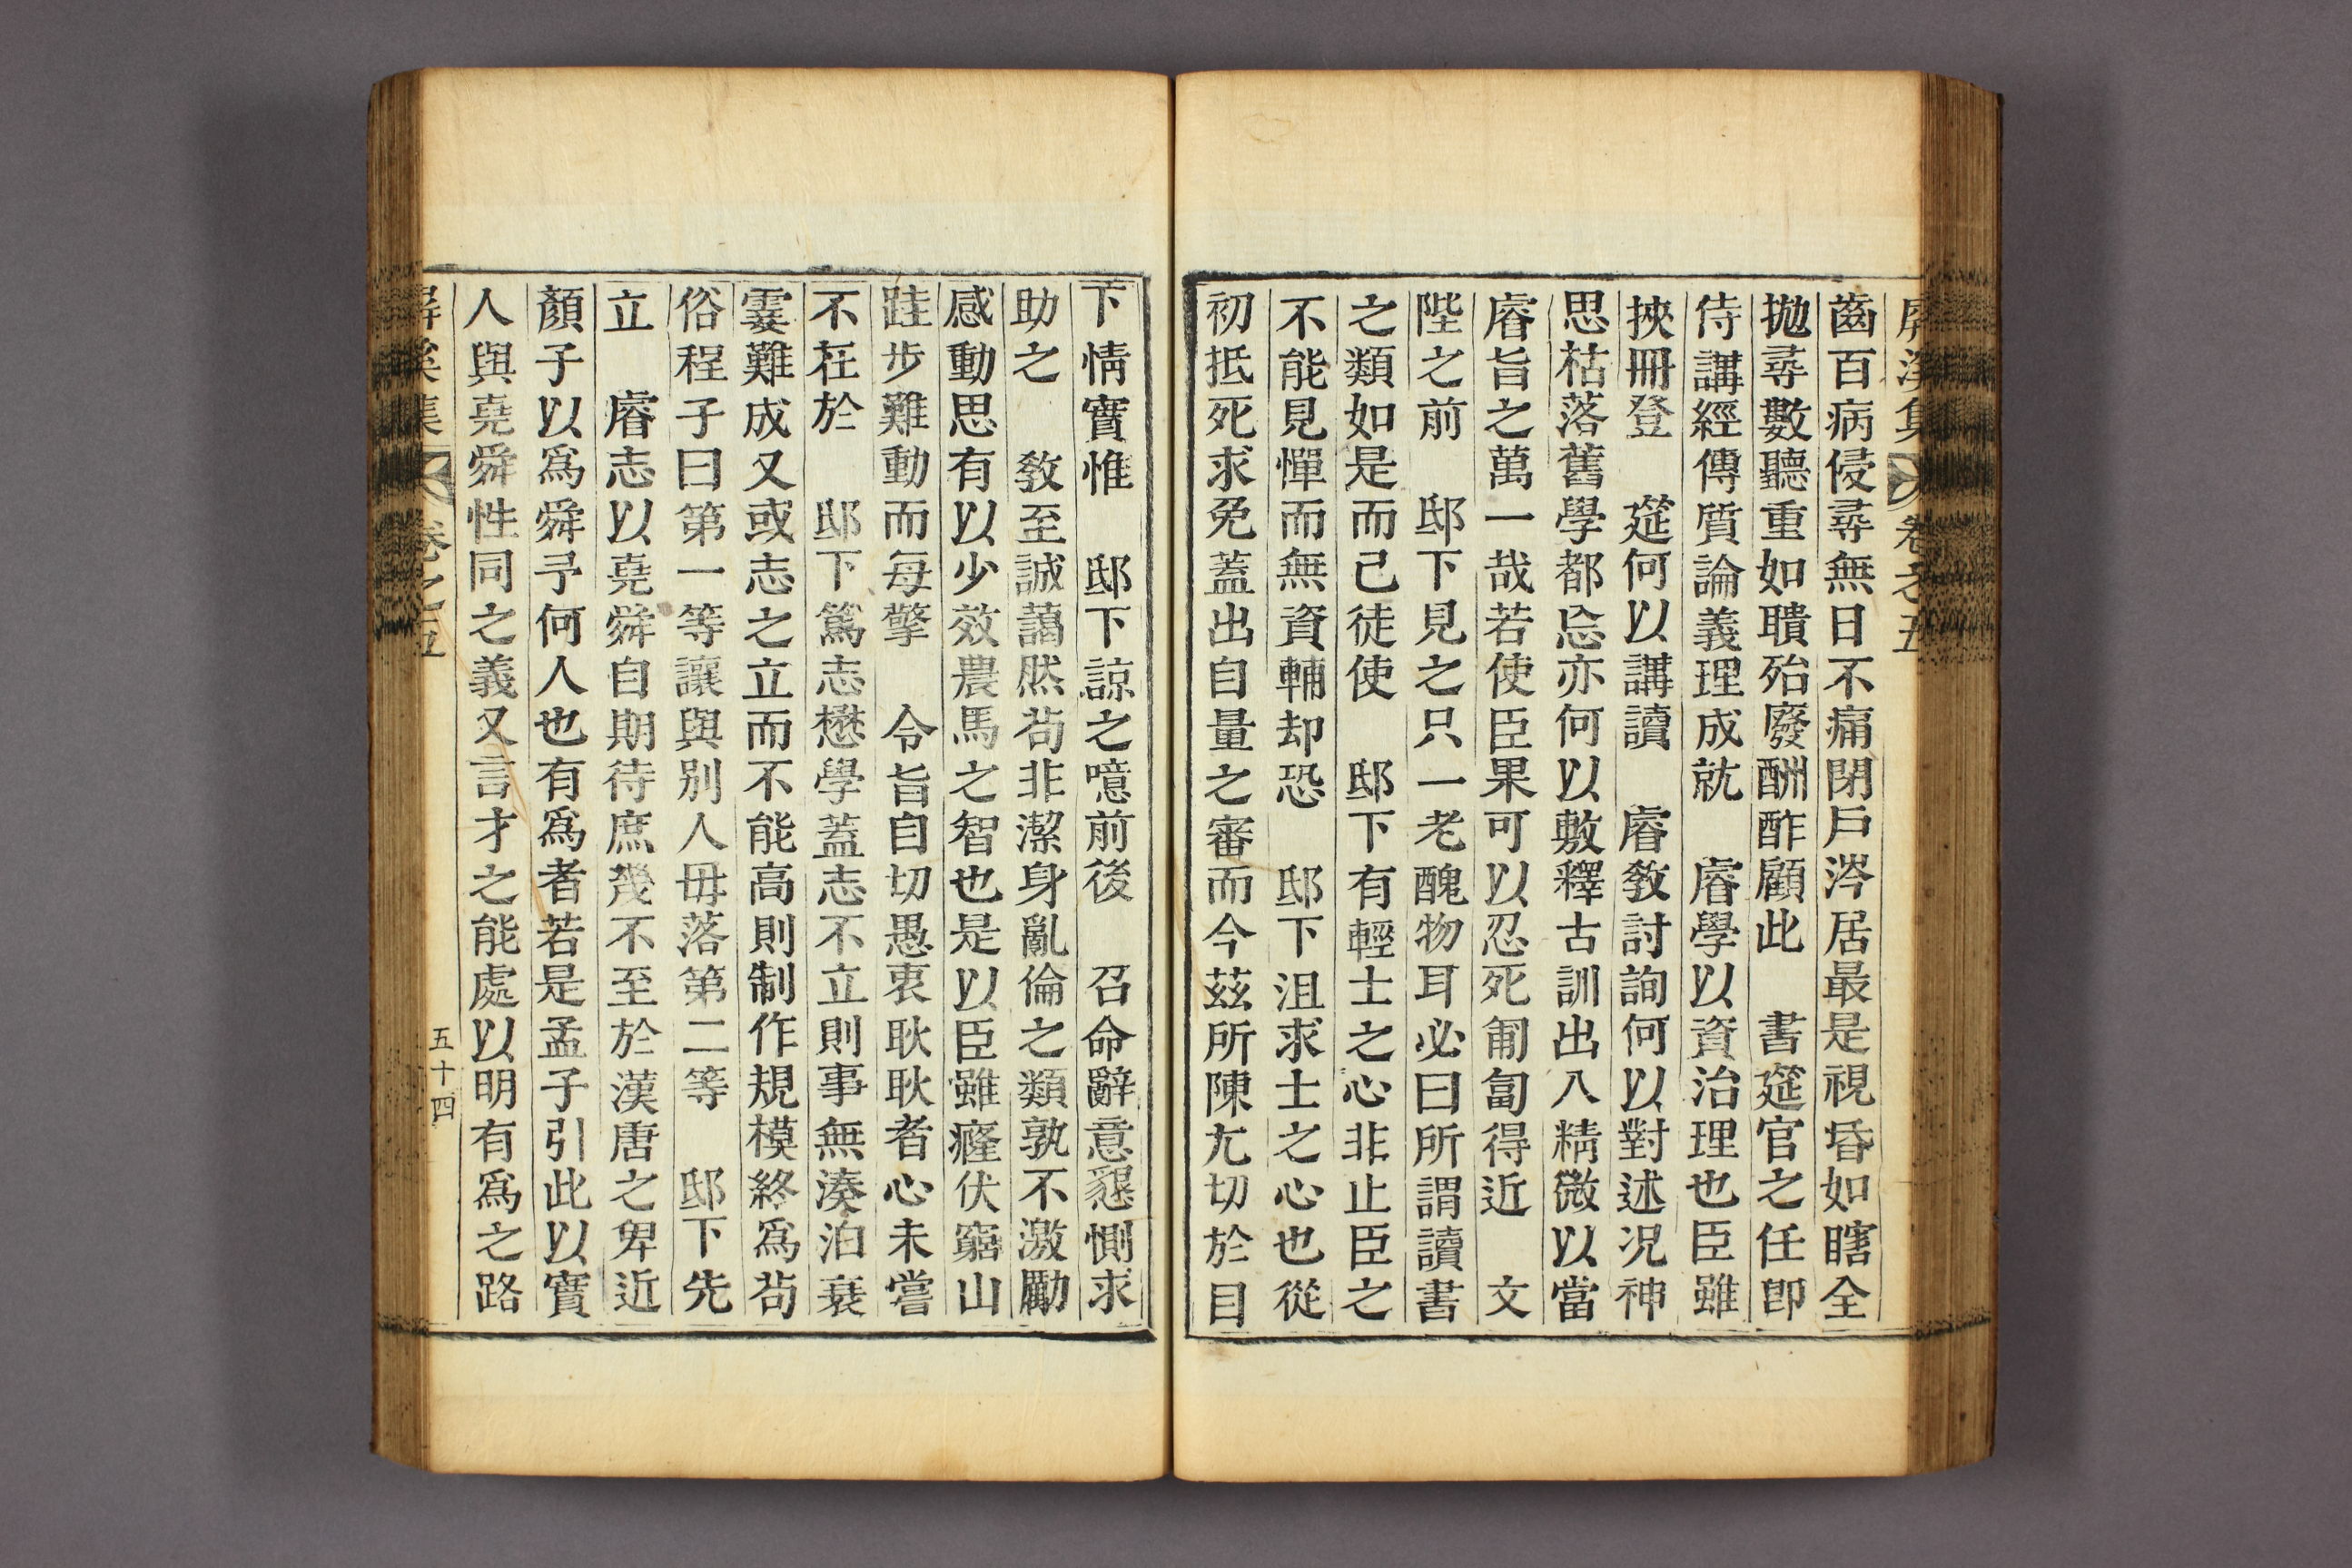 屛溪集 卷之五
齒百病侵尋無日不痛閉戶涔居最是視昏如瞎全
拋尋數聽重如聵殆廢酬酢顧此 書筵官之任卽
侍講經傳質論義理成就 睿學以資治理也臣雖
挾冊登 筵何以講讀 睿敎討詢何以對述况神
思枯落舊學都忘亦何以敷釋古訓出入精微以當
睿旨之萬一哉若使臣果可以忍死匍匐得近 文
陛之前 邸下見之只一老醜物耳必曰所謂讀書
之類如是而已徒使 邸下有輕士之心非止臣之
不能見憚而無資輔却恐 邸下沮求士之心也從
初抵死求免蓋出自量之審而今玆所陳尤切於目
下情實惟 邸下諒之噫前後 召命辭意懇惻求
助之 敎至誠藹然苟非潔身亂倫之類孰不激勵
感動思有以少效農馬之智也是以臣雖癃伏窮山
跬步難動而每擎 令旨自切愚衷耿耿者心未嘗
不在於 邸下篤志懋學蓋志不立則事無湊泊衰
霎難成又或志之立而不能高則制作規模終爲苟
俗程子曰第一等讓與別人毋落第二等 邸下先
立 睿志以堯舜自期待庶幾不至於漢唐之卑近
顏子以爲舜予何人也有爲者若是孟子引此以實
人與堯舜性同之義又言才之能處以明有爲之路
屛溪集 卷之五 五十四